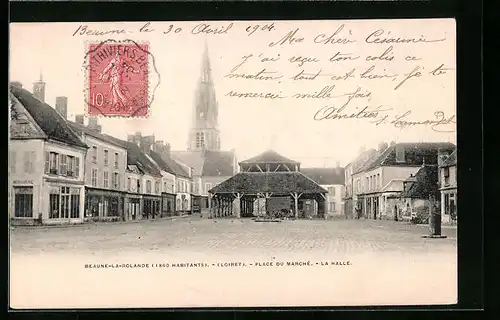 Beaune le 30 Avril 1904
Ma Chère Césarine
j'ai reçu ton colis ce
matin, tout est bien, je te
remercie mille fois.
Amitiés
PITHIVIERS
10
BEAUNE-LA-ROLANDE (1840 HABITANTS). - (LOIRET). - PLACE DU MARCHÉ. - LA HALLE.